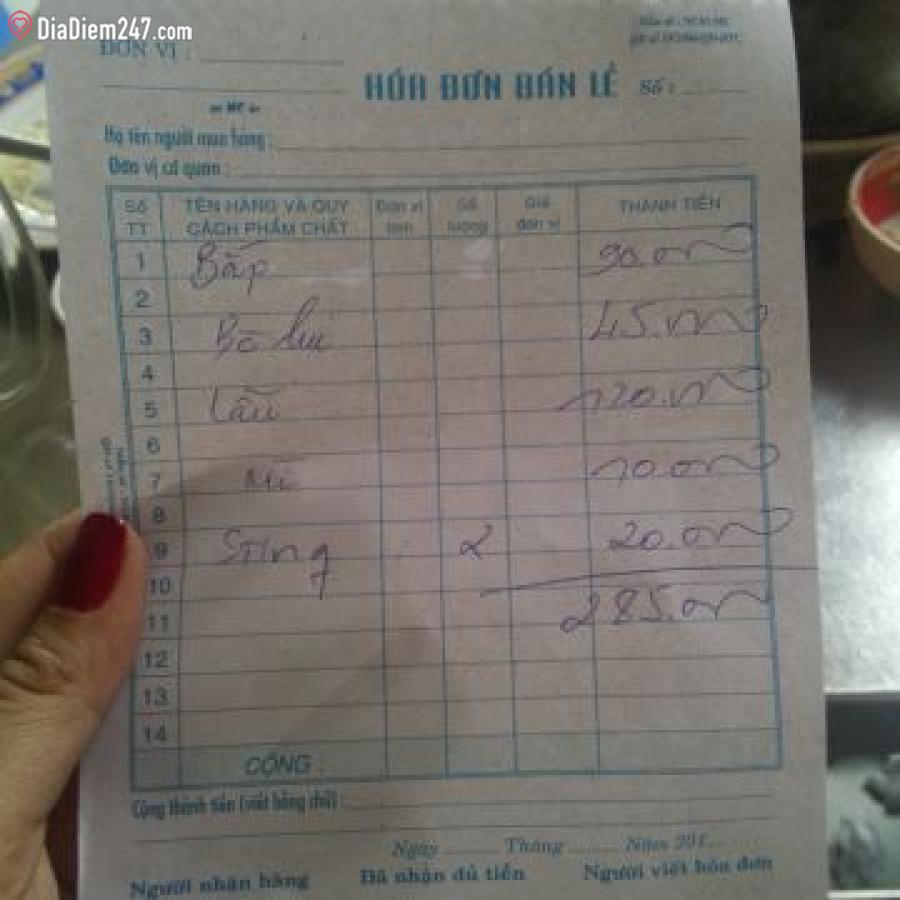 DiaDiem247.com
ĐƠN VỊ :
HÓA ĐƠN BÁN LẺ Số :
Họ tên người mua hàng :
Đơn vị cơ quan :
Số TT TÊN HÀNG VÀ QUY CÁCH PHẨM CHẤT Đơn vị tính Số lượng Giá đơn vị THÀNH TIỀN
1 Bắp 90.000
2
3 Bò lui 45.000
4
5 Lẫu 120.000
6
7 Mì 10.000
8
9 Sting 2 20.000
10
11 285.000
12
13
14
CỘNG :
Cộng thành tiền (viết bằng chữ) :
Ngày Tháng Năm 201
Người nhận hàng Đã nhận đủ tiền Người viết hóa đơn